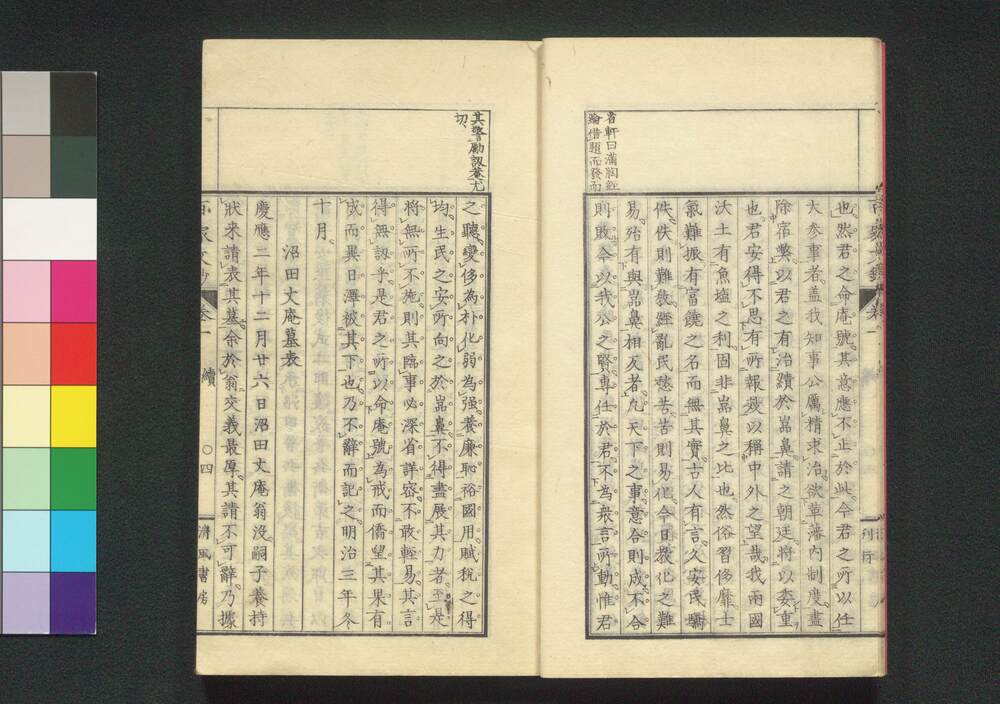 省軒曰滿胸經
綸借題而發而
也然君之命庵號其意應不止於此今君之所以任
大參事者蓋我知事公厲精求治欲革藩内制度盡
除宿弊以君之有治績於嵓鼻請之朝廷將以委重
也君安得不思有所報效以稱中外之望哉我兩國
沃土有魚塩之利固非嵓鼻之比也然俗習侈靡士
氣難振有富饒之名而無其實古人有言久安民驕
佚佚則難敎經亂民愁苦苦則易化今日敎化之難
易殆有與嵓鼻相反者凡天下之事意合則成不合
則敗今以我公之賢專任於君不為衆言所動惟君
其警勵誡養尤
切、
之聽變侈為朴化弱為强養廉恥裕國用賦稅之得
均生民之安所向之於嵓鼻不得盡展其力者至是
將無所不施則其臨事必深省詳密不敢輕易其言
得無訒乎是君之所以命庵號為戒而僑望其果有
成而異日澤被其下也乃不辭而記之明治三年冬
十月
沼田丈庵墓表
慶應二年十二月廿六日沼田丈庵翁沒嗣子養持
狀来請表其墓余於翁交義最厚其請不可辭乃據
續
〇四
清風書房